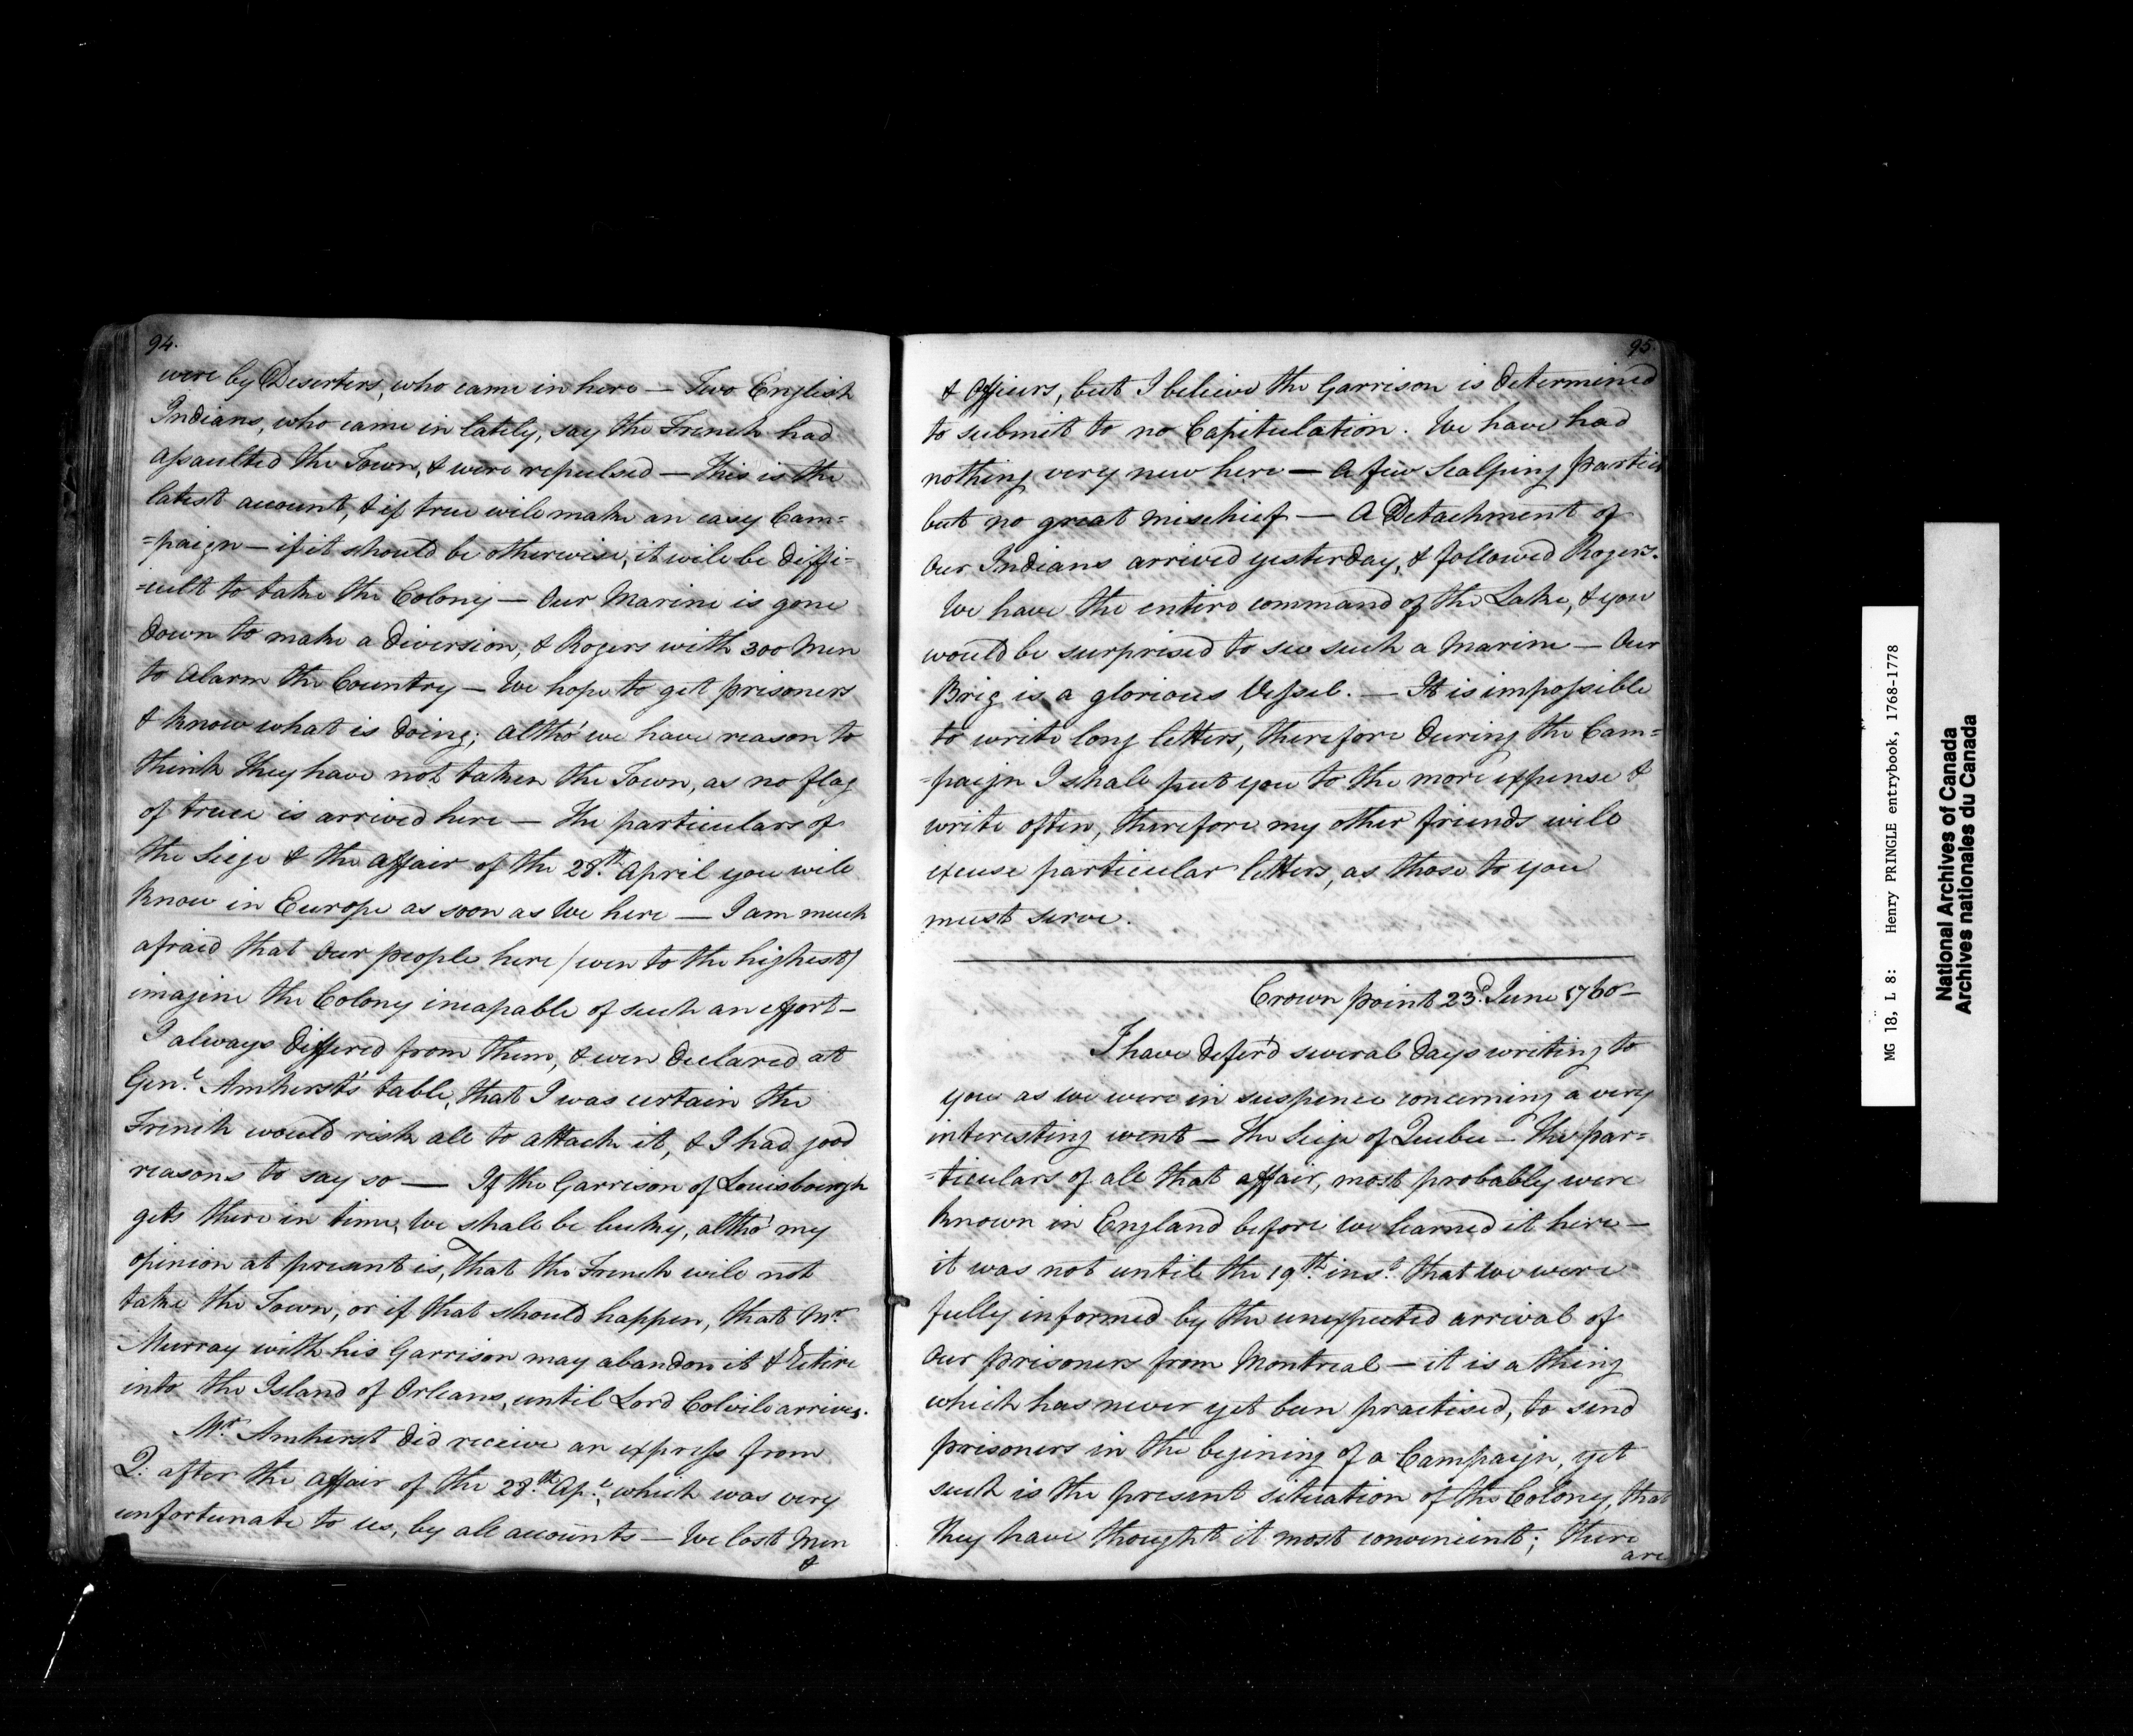 94.
were by Deserters, who came in here — Two English
Indians, who came in lately, say the French had
assaulted the Town, & were repulsed — This is the
latest account, & if true will make an easy Cam=
=paign — if it should be otherwise, it will be diffi=
=cult to take the Colony — Our Marine is gone
down to make a diversion, & Rogers with 300 Men
to alarm the Country — We hope to get prisoners
& know what is doing; altho' we have reason to
think they have not taken the Town, as no flag
of truce is arrived here — The particulars of
the Siege & the affair of the 28th. April you will
know in Europe as soon as We here — I am much
afraid that Our people here / even to the highest /
imagine the Colony incapable of such an effort —
I always differed from them, & even declared at
Genl. Amherst's table, that I was certain the
French would risk all to attack it, & I had good
reasons to say so — If the Garrison of Louisbourgh
gets there in time, We shall be lucky, altho' my
opinion at present is, that the French will not
take the Town, or if that should happen, that Mr.
Murray with his Garrison may abandon it & Retire
into the Island of Orleans, until Lord Colvile arrives.
Mr. Amherst did receive an express from
Q: after the affair of the 28th. Apl., which was very
unfortunate to us, by all accounts — We lost Men
&
95.
& Officers, but I believe the Garrison is determined
to submit to no Capitulation. We have had
nothing very new here — A few Scalping parties
but no great mischief — A Detachment of
Our Indians arrived yesterday, & followed Rogers.
We have the entire command of the Lake, & you
would be surprised to see such a Marine — Our
Brig is a glorious Vessel. — It is impossible
to write long letters, therefore during the Cam=
=paign I shall put you to the more expense &
write often, therefore my other friends will
excuse particular letters, as those to you
must serve.
Crown point 23d. June 1760 —
I have defer'd several days writing to
you as we were in suspence concerning a very
interesting event — The Siege of Quebec — The par=
=ticulars of all that affair, most probably were
known in England before we learned it here —
it was not until the 19th. inst. that we were
fully informed by the unexpected arrival of
Our prisoners from Montreal — it is a thing
which has never yet been practised, to send
prisoners in the begining of a Campaign, yet
such is the present situation of the Colony, that
they have thought it most convenient; there
are
MG 18, L 8: Henry PRINGLE entrybook, 1768-1778
National Archives of Canada
Archives nationales du Canada